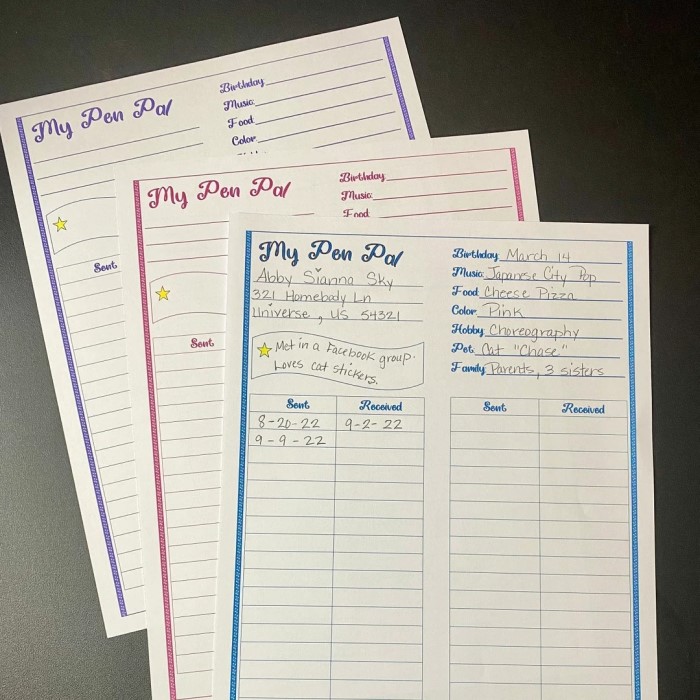 My Pen Pal
Birthday
Music
Food
Color
Sent
My Pen Pal
Birthday
Music
Food
Sent
My Pen Pal
Abby Sianna Sky
321 Homebody Ln
Universe, US 54321
Met in a Facebook group.
Loves cat stickers.
Birthday March 14
Music Japanese City Pop
Food Cheese Pizza
Color Pink
Hobby Choreography
Pet Cat "Chase"
Family Parents, 3 sisters
Sent Received
8-20-22 9-2-22
9-9-22
Sent Received